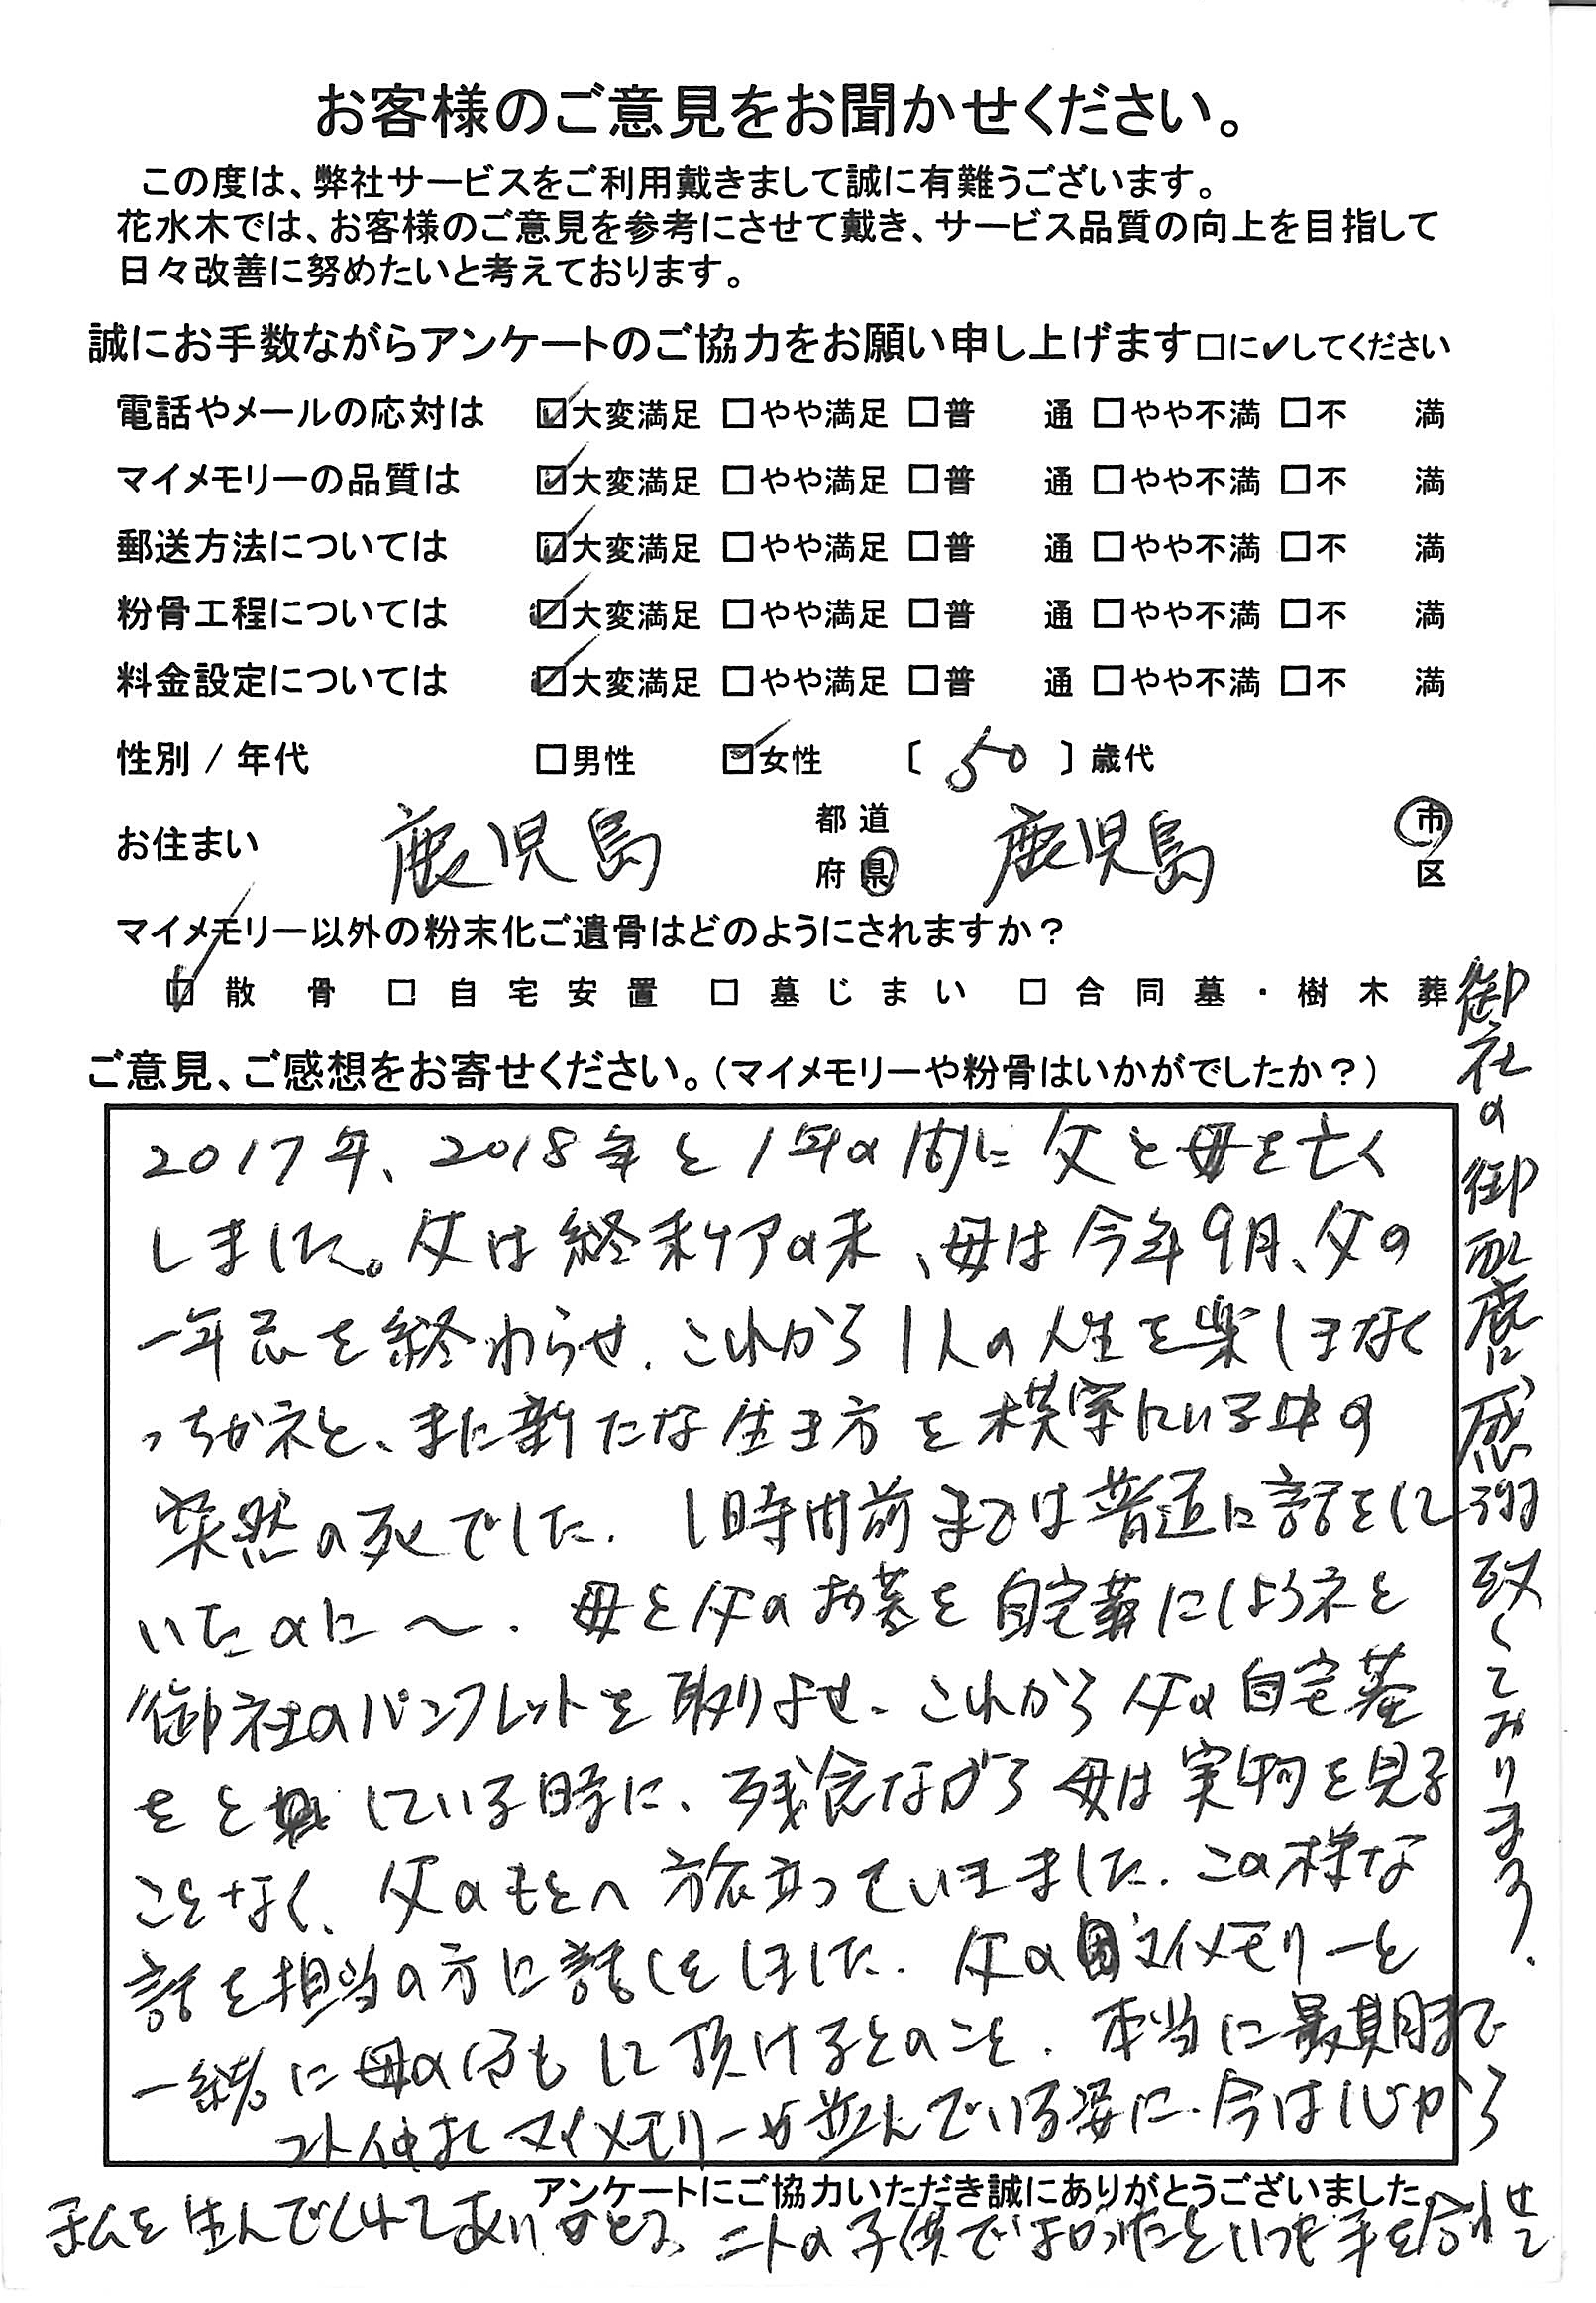 お客様のご意見をお聞かせください。
この度は、弊社サービスをご利用戴きまして誠に有難うございます。
花水木では、お客様のご意見を参考にさせて戴き、サービス品質の向上を目指して
日々改善に努めたいと考えております。
誠にお手数ながらアンケートのご協力をお願い申し上げます□に✔してください
電話やメールの応対は ☑大変満足 □やや満足 □普 通 □やや不満 □不 満
マイメモリーの品質は ☑大変満足 □やや満足 □普 通 □やや不満 □不 満
郵送方法については ☑大変満足 □やや満足 □普 通 □やや不満 □不 満
粉骨工程については ☑大変満足 □やや満足 □普 通 □やや不満 □不 満
料金設定については ☑大変満足 □やや満足 □普 通 □やや不満 □不 満
性別 / 年代 □男性 ☑女性 〔 50 〕歳代
お住まい 鹿児島 都道府県 鹿児島 市区
マイメモリー以外の粉末化ご遺骨はどのようにされますか？
☑散骨 □自宅安置 □墓じまい □合同墓・樹木葬
ご意見、ご感想をお寄せください。（マイメモリーや粉骨はいかがでしたか？）
2017年、2018年と1年の間に父と母を亡く
しました。父は終末ケアの末、母は今年9月、父の
一年忌を終わらせ、これから1人の人生を楽しまなく
っちゃネと、また新たな生き方を模索している中の
突然の死でした。1時間前までは普通に話をして
いたのに〜。母と父のお墓を自宅墓にしようネと
御社のパンフレットを取りよせ、これから父の自宅墓
をと してい る時に、残念ながら母は実物を見る
ことなく、父のもとへ旅立っていきました。この様な
話を担当の方に話しをしました。父のマイメモリーと
一緒に母の分もして頂けるとのこと。本当に最期まで
仲よくマイメモリーが並んでいる姿に、今は心から
アンケートにご協力いただき誠にありがとうございました。
私を生んでくれてありがとう、二人の子供でよかったといつも手を合わせて
御社の御配慮に感謝致しております。